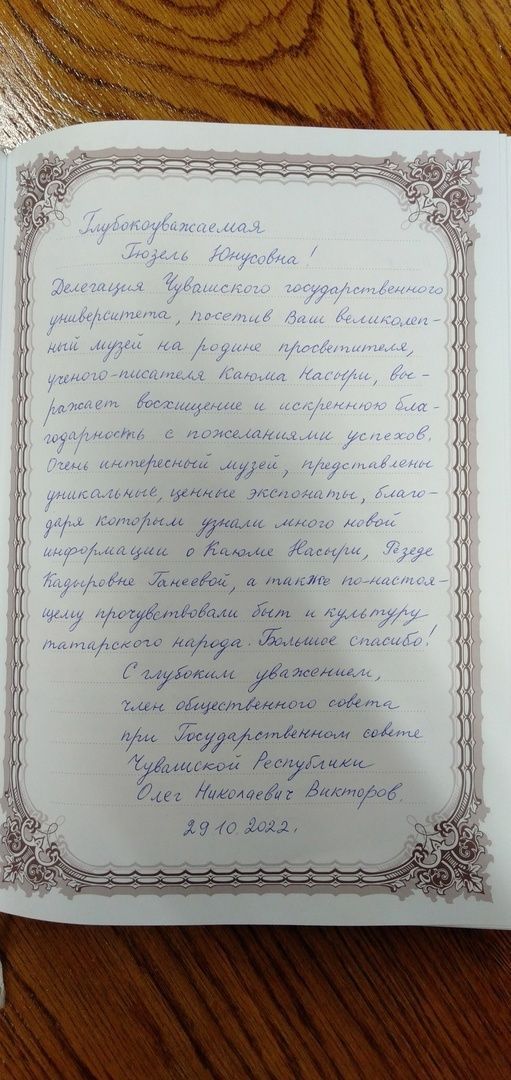 Глубокоуважаемая
Гюзель Юнусовна!
Делегация Чувашского государственного
университета, посетив Ваш великолеп-
ный музей на родине просветителя,
ученого-писателя Каюма Насыри, вы-
ражает восхищение и искреннюю бла-
годарность с пожеланиями успехов.
Очень интересный музей, представлены
уникальные, ценные экспонаты, благо-
даря которым узнали много новой
информации о Каюме Насыри, Резеде
Кадыровне Ганеевой, а также по-настоя-
щему прочувствовали быт и культуру
татарского народа. Большое спасибо!
С глубоким уважением,
член общественного совета
при Государственном совете
Чувашской Республики
Олег Николаевич Викторов.
29 10 2022.